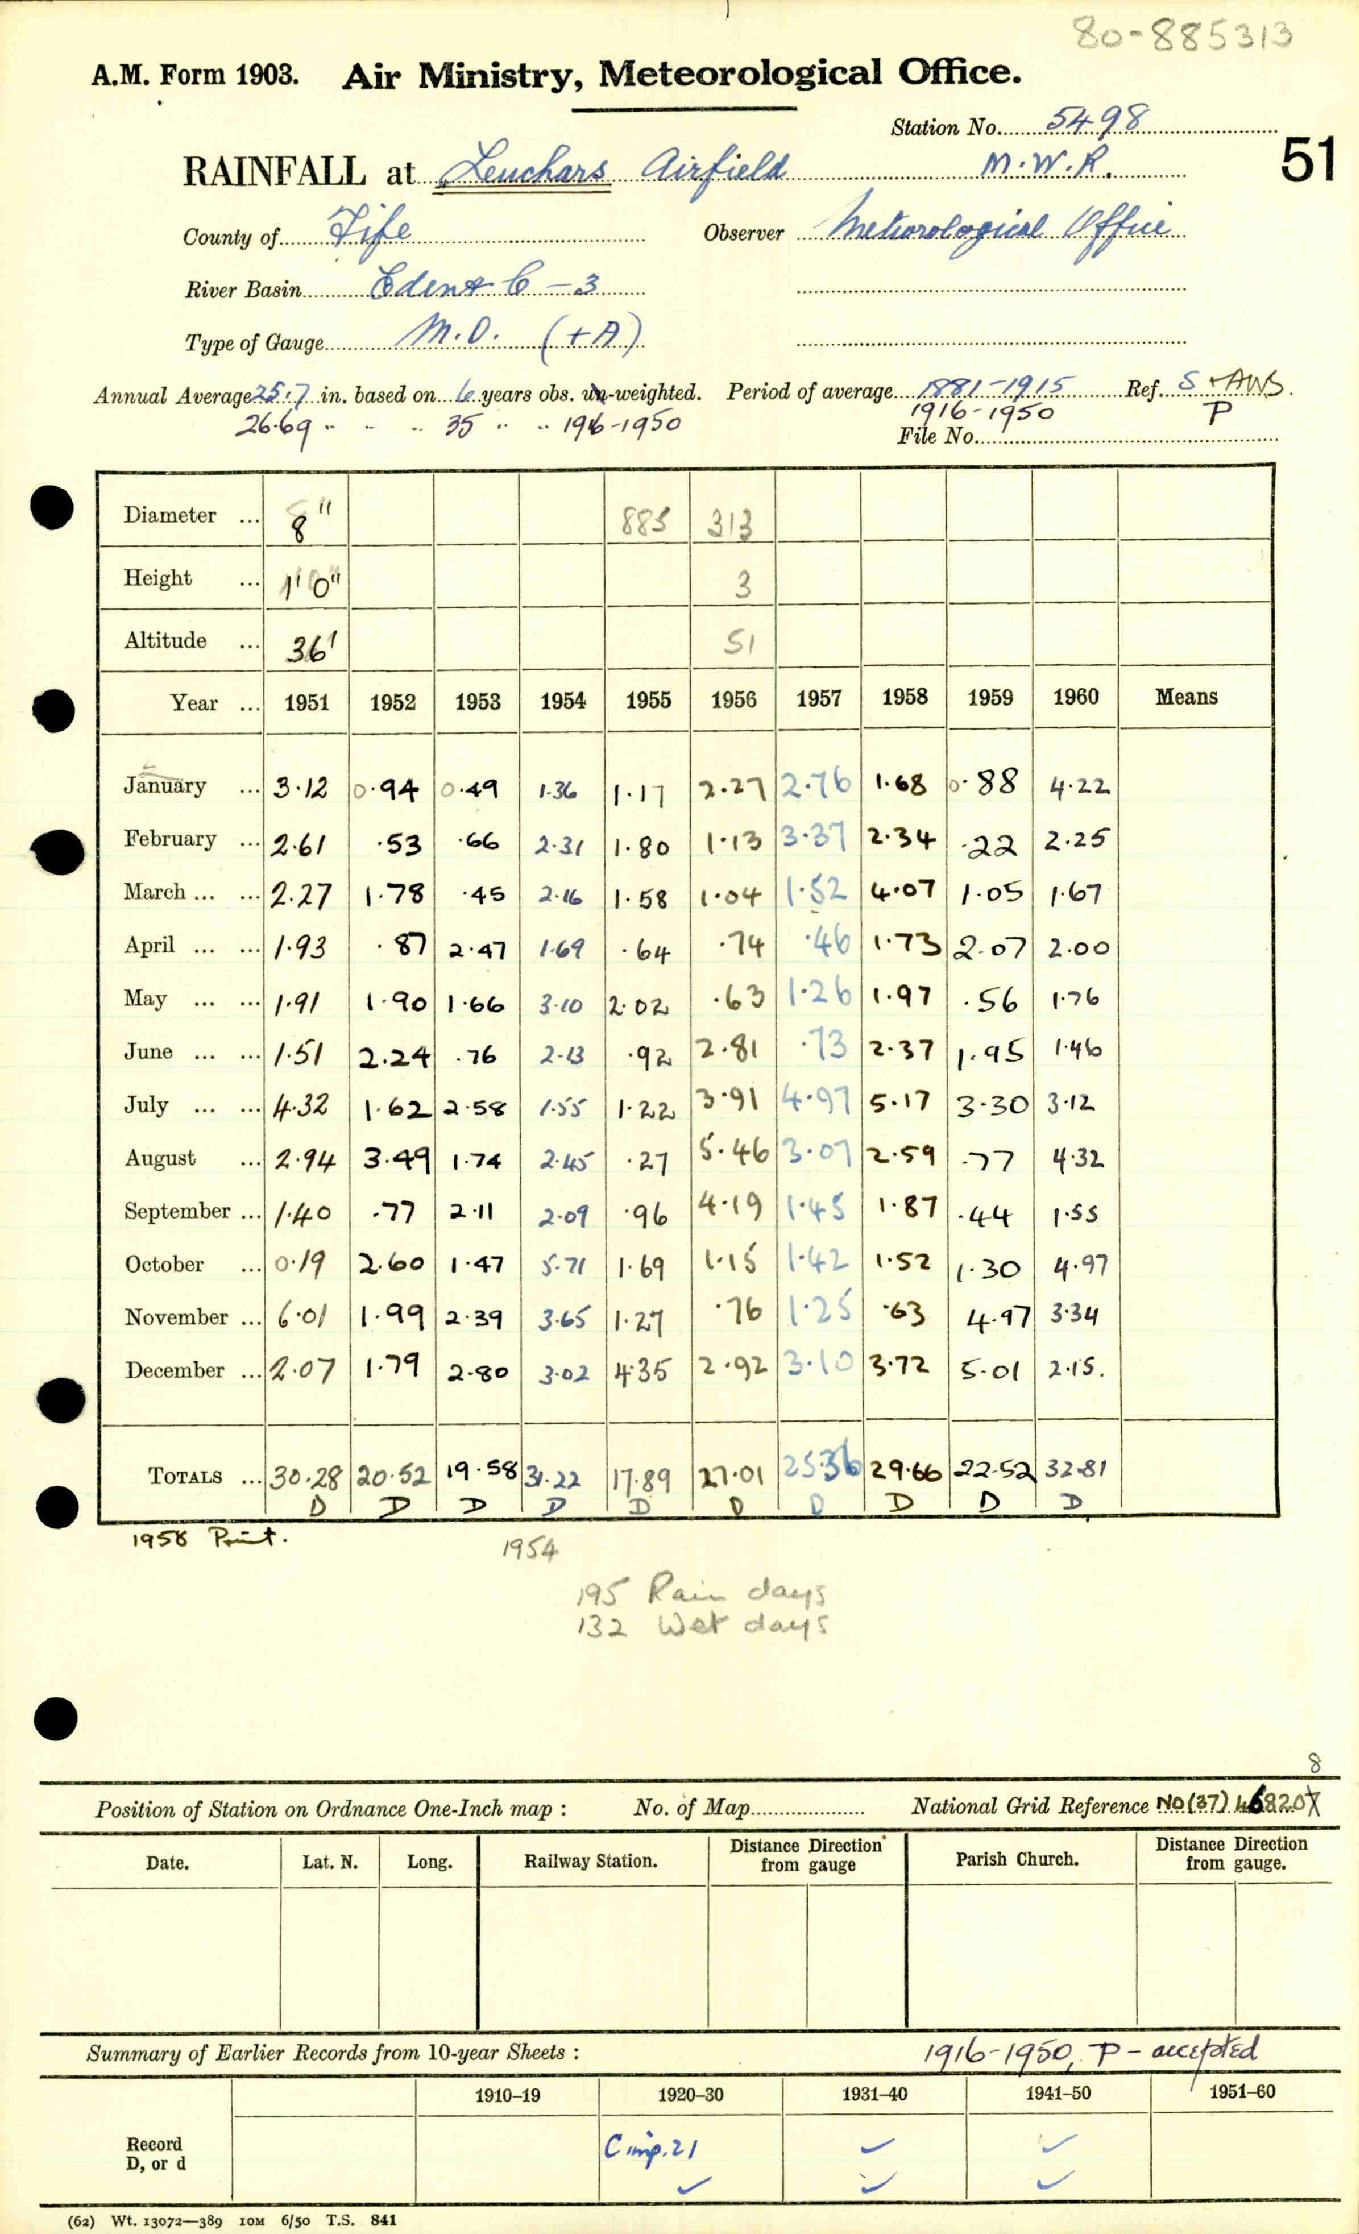 80-885313
A.M. Form 1903. Air Ministry, Meteorological Office.
Station No. 5498
RAINFALL at Leuchars Airfield M.W.R. 51
County of Fife Observer Meteorological Office
River Basin Eden & C - 3
Type of Gauge M.O. (+A)
Annual Average 25.7 in. based on 6 years obs. un-weighted. Period of average 1881-1915 Ref. S + AWS.
26.69 " " " 35 " " 1916-1950 1916-1950 P
File No.
Diameter ... 8" 885 313
Height ... 1'0" 3
Altitude ... 36' 51
Year ... 1951 1952 1953 1954 1955 1956 1957 1958 1959 1960 Means
January ... 3.12 0.94 0.49 1.36 1.17 2.27 2.76 1.68 0.88 4.22
February ... 2.61 .53 .66 2.31 1.80 1.13 3.37 2.34 .22 2.25
March ... ... 2.27 1.78 .45 2.16 1.58 1.04 1.52 4.07 1.05 1.67
April ... ... 1.93 .87 2.47 1.69 .64 .74 .46 1.73 2.07 2.00
May ... ... 1.91 1.90 1.66 3.10 2.02 .63 1.26 1.97 .56 1.76
June ... ... 1.51 2.24 .76 2.13 .92 2.81 .73 2.37 1.95 1.46
July ... ... 4.32 1.62 2.58 1.55 1.22 3.91 4.97 5.17 3.30 3.12
August ... 2.94 3.49 1.74 2.45 .27 5.46 3.07 2.59 .77 4.32
September ... 1.40 .77 2.11 2.09 .96 4.19 1.45 1.87 .44 1.55
October ... 0.19 2.60 1.47 5.71 1.69 1.15 1.42 1.52 1.30 4.97
November ... 6.01 1.99 2.39 3.65 1.27 .76 1.25 .63 4.97 3.34
December ... 2.07 1.79 2.80 3.02 4.35 2.92 3.10 3.72 5.01 2.15.
TOTALS ... 30.28 20.52 19.58 31.22 17.89 27.01 25.36 29.66 22.52 32.81
D D D D D D D D D D
1958 Print. 1954
195 Rain days
132 Wet days
8
Position of Station on Ordnance One-Inch map : No. of Map National Grid Reference NO (37) 468207
Date. Lat. N. Long. Railway Station. Distance Direction from gauge Parish Church. Distance Direction from gauge.
Summary of Earlier Records from 10-year Sheets : 1916-1950, P - accepted
1910–19 1920–30 1931–40 1941–50 1951–60
Record D, or d C imp. 21 ✓ ✓
✓ ✓ ✓
(62) Wt. 13072—389 10M 6/50 T.S. 841